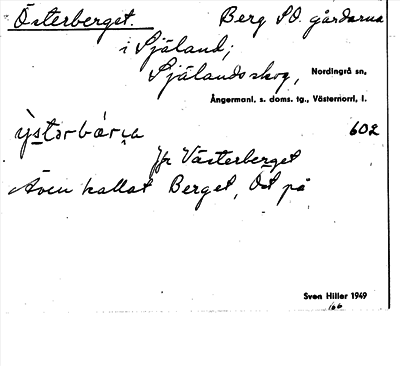 Österberget. Berg SO. gårdarna
i Själand;
Själandsskog, Nordingrå sn,
Ångermanl. s. doms. tg., Västernorrl. l.
ẏstərbárɩa 602
Jfr Västerberget
Även kallat Berget, Öst på
Sven Hiller 1949
166